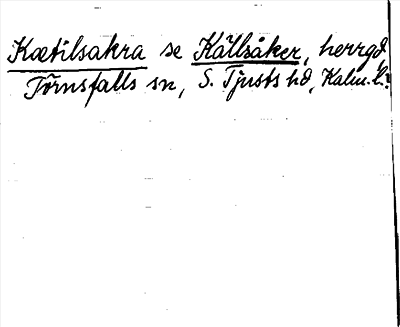 Kætilsakra se Källsåker, herrgd
Törnsfalls sn, S. Tjusts hd, Kalm. l.